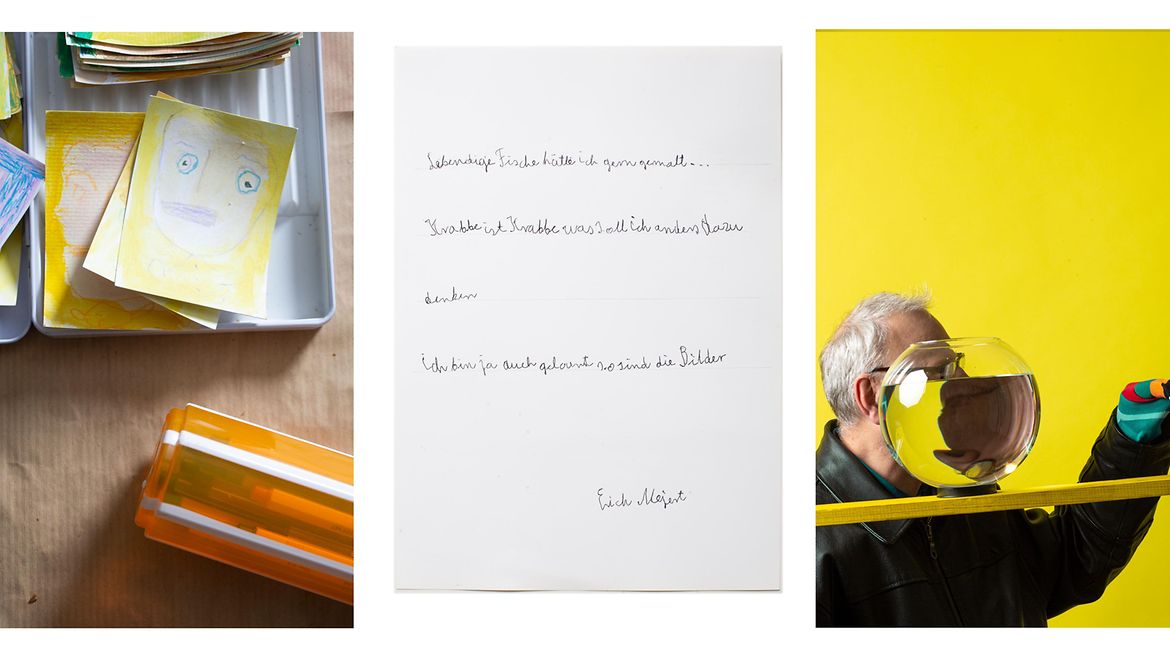 Lebendige Fische hätte ich gern gemalt...
Krabbe ist Krabbe was soll ich anders dazu
denken
ich bin ja auch gelaunt so sind die Bilder
Erich Mejert